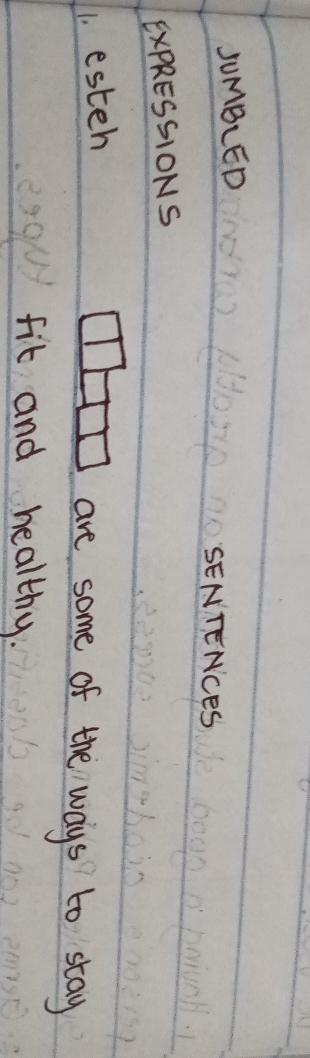 JUMBLED EXPRESSIONS
SENTENCES
1. esteh
are some of the ways to stay fit and healthy.